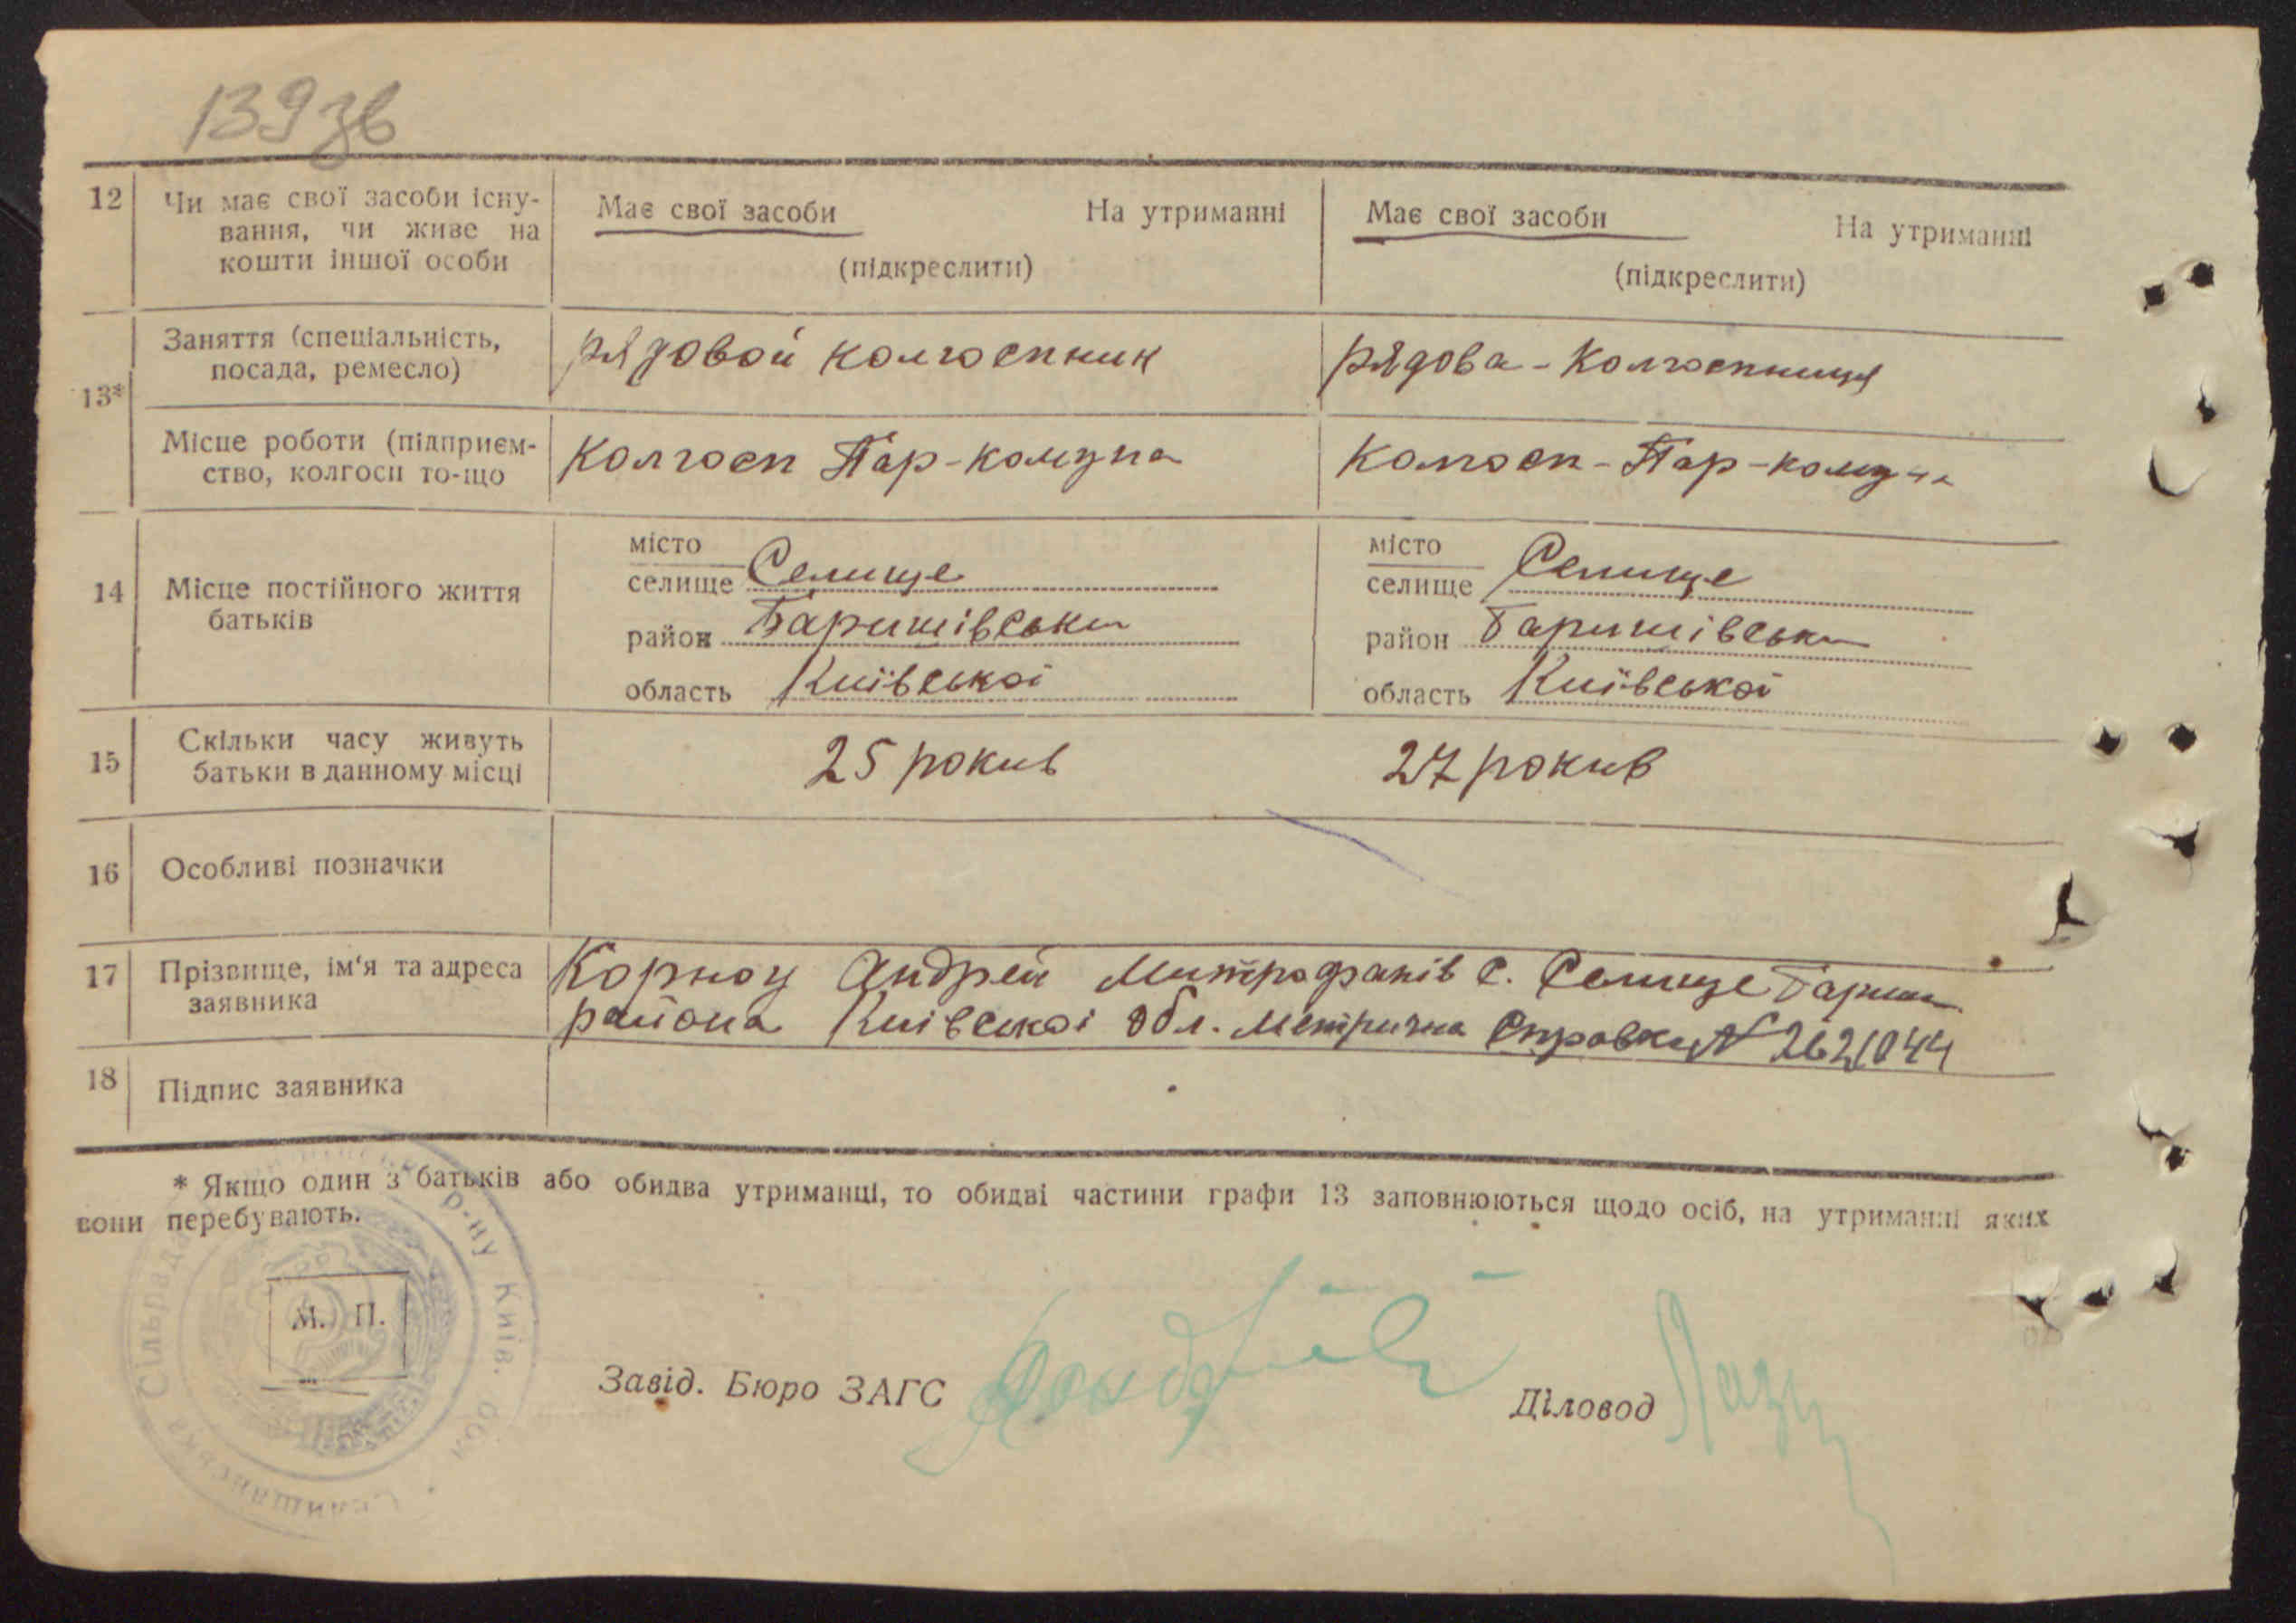 139 зв
12 Чи має свої засоби існу-
вання, чи живе на
кошти іншої особи
Має свої засоби На утриманні
(підкреслити)
Має свої засоби На утриманні
(підкреслити)
13*
Заняття (спеціальність,
посада, ремесло)
рядовой колгоспник
рядова - колгоспниця
Місце роботи (підприєм-
ство, колгосп то-що
Колгосп Пар-комуна
Колгосп - Пар-комуна
14 Місце постійного життя
батьків
місто
селище Селище
район Баришівськи
область Київської
місто
селище Селище
район Баришівськи
область Київської
15 Скільки часу живуть
батьки в данному місці
25 рокив
27 рокив
16 Особливі позначки
17 Прізвище, ім'я та адреса
заявника
Андрей Митрофанів с. Селище Бариш
района Київської обл. Метрична Справка № 
18 Підпис заявника
* Якщо один з батьків або обидва утриманці, то обидві частини графи 13 заповнюються щодо осіб, на утриманні яких
вони перебувають.
М. П.
Сільрада р-ну Київ. обл
Завід. Бюро ЗАГС
Діловод